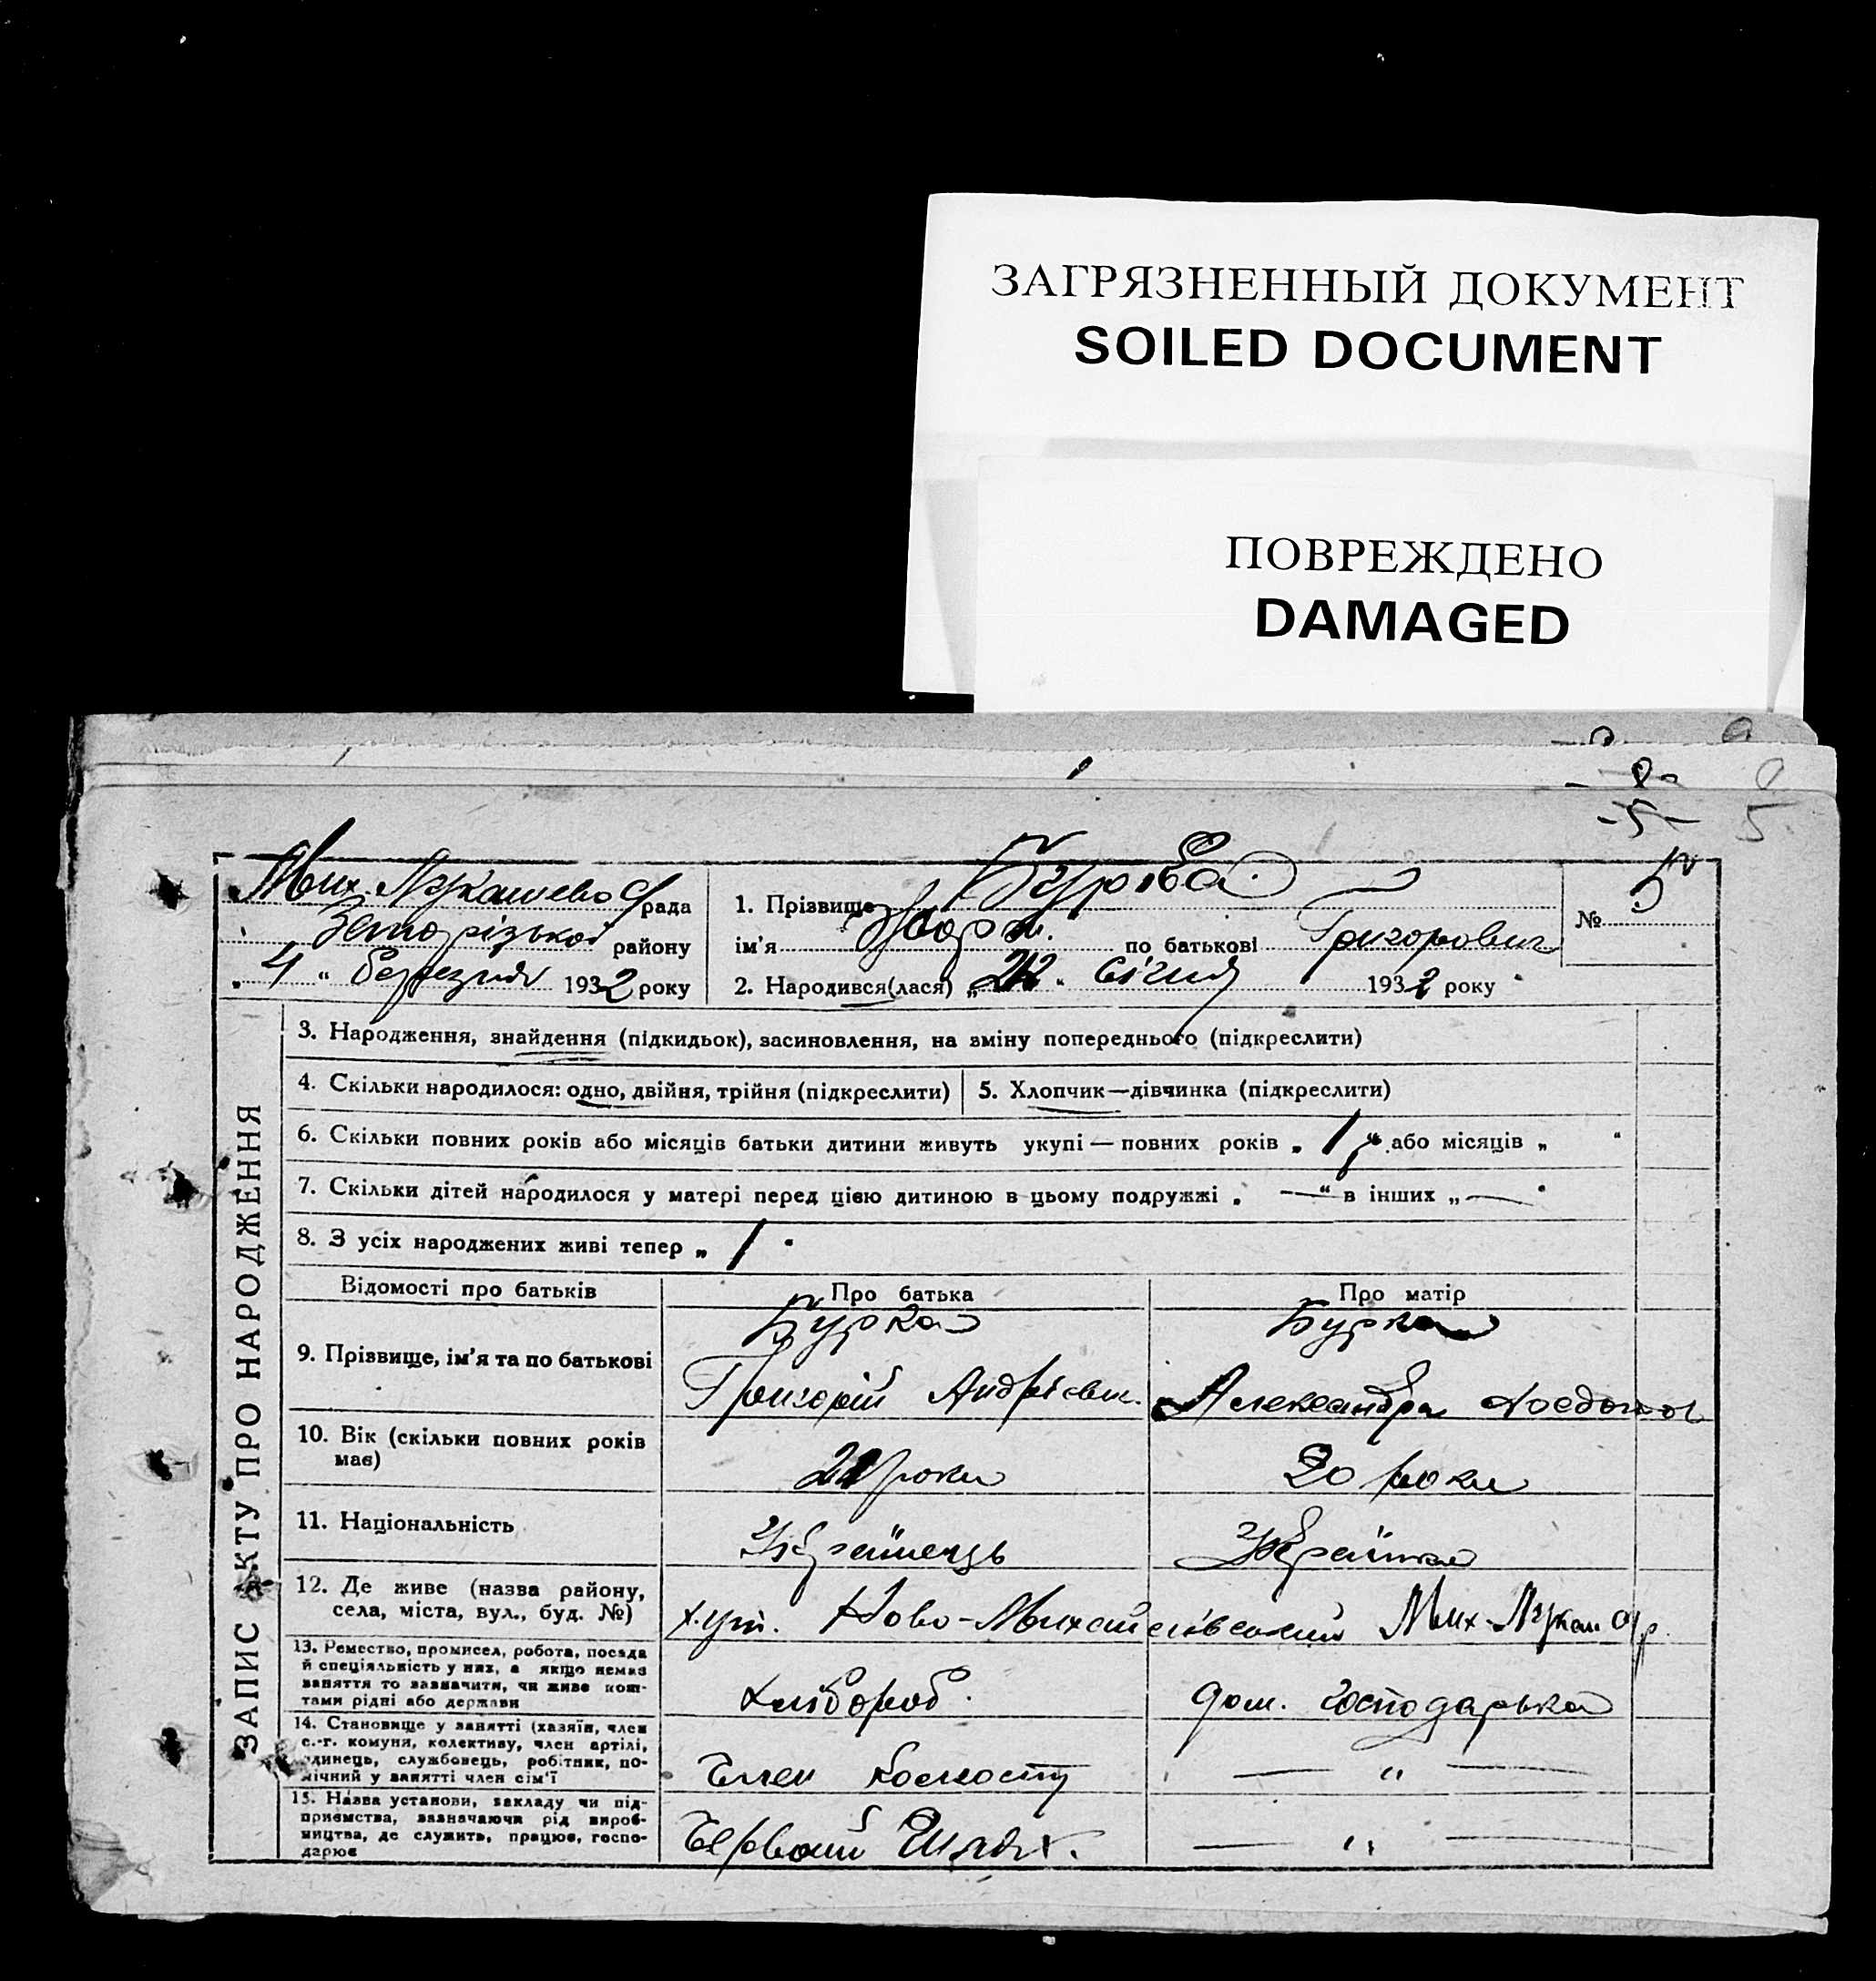 ЗАГРЯЗНЕННЫЙ ДОКУМЕНТ
SOILED DOCUMENT
ПОВРЕЖДЕНО
DAMAGED
-8-
-5- 5
Мих. Лукашево рада
Запорізької району
"4" березня 1932 року
1. Прізвище Бурка
ім'я по батькові Григорович
2. Народився(лася) „ " січня 1932 року
№ 5
ЗАПИС АКТУ ПРО НАРОДЖЕННЯ
3. Народження, знайдення (підкидьок), засиновлення, на зміну попереднього (підкреслити)
4. Скільки народилося: одно, двійня, трійня (підкреслити)
5. Хлопчик—дівчинка (підкреслити)
6. Скільки повних років або місяців батьки дитини живуть укупі — повних років „ 1 " або місяців „ "
7. Скільки дітей народилося у матері перед цією дитиною в цьому подружжі „ — " в інших „ — "
8. З усіх народжених живі тепер „ 1 "
Відомості про батьків Про батька Про матір
9. Прізвище, ім'я та по батькові
Бурка Бурка
Григорій Андрієвич Александра
10. Вік (скільки повних років
має)
роки 20 роки
11. Національність
Українець Українка
12. Де живе (назва району,
села, міста, вул., буд. №)
хут. Ново-Михайлівський Мих-Лукаш с/р.
13. Ремество, промисел, робота, посада
й спеціяльність у них, а якщо немає
заняття то зазначити, чи живе кош-
тами рідні або держави
хлібороб. дом. господарька
14. Становище у занятті (хазяїн, член
с.-г. комуни, колективу, член артілі,
одинець, службовець, робітник, по-
мічний у занятті член сім'ї
Член колгоспу — " —
15. Назва установи, закладу чи під-
приємства, зазначаючи рід вироб-
ництва, де служить, працює, госпо-
дарює
Червоний Шлях. — " —